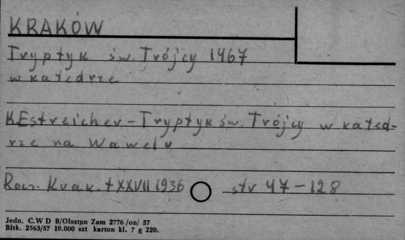 KRAKÓW
Tryptyk św. Trójcy 1467
w katedrze
KEstreicher - Tryptyk św. Trójcy w kated-
rze na Wawelu
Rocz. Krak. t XXVII 1936 str 47-128
Jedn. C.W D B/Olsztyn Zam 2776/on/ 57
Bltk. 2563/57 10.000 szt karton kl. 7 g 220.